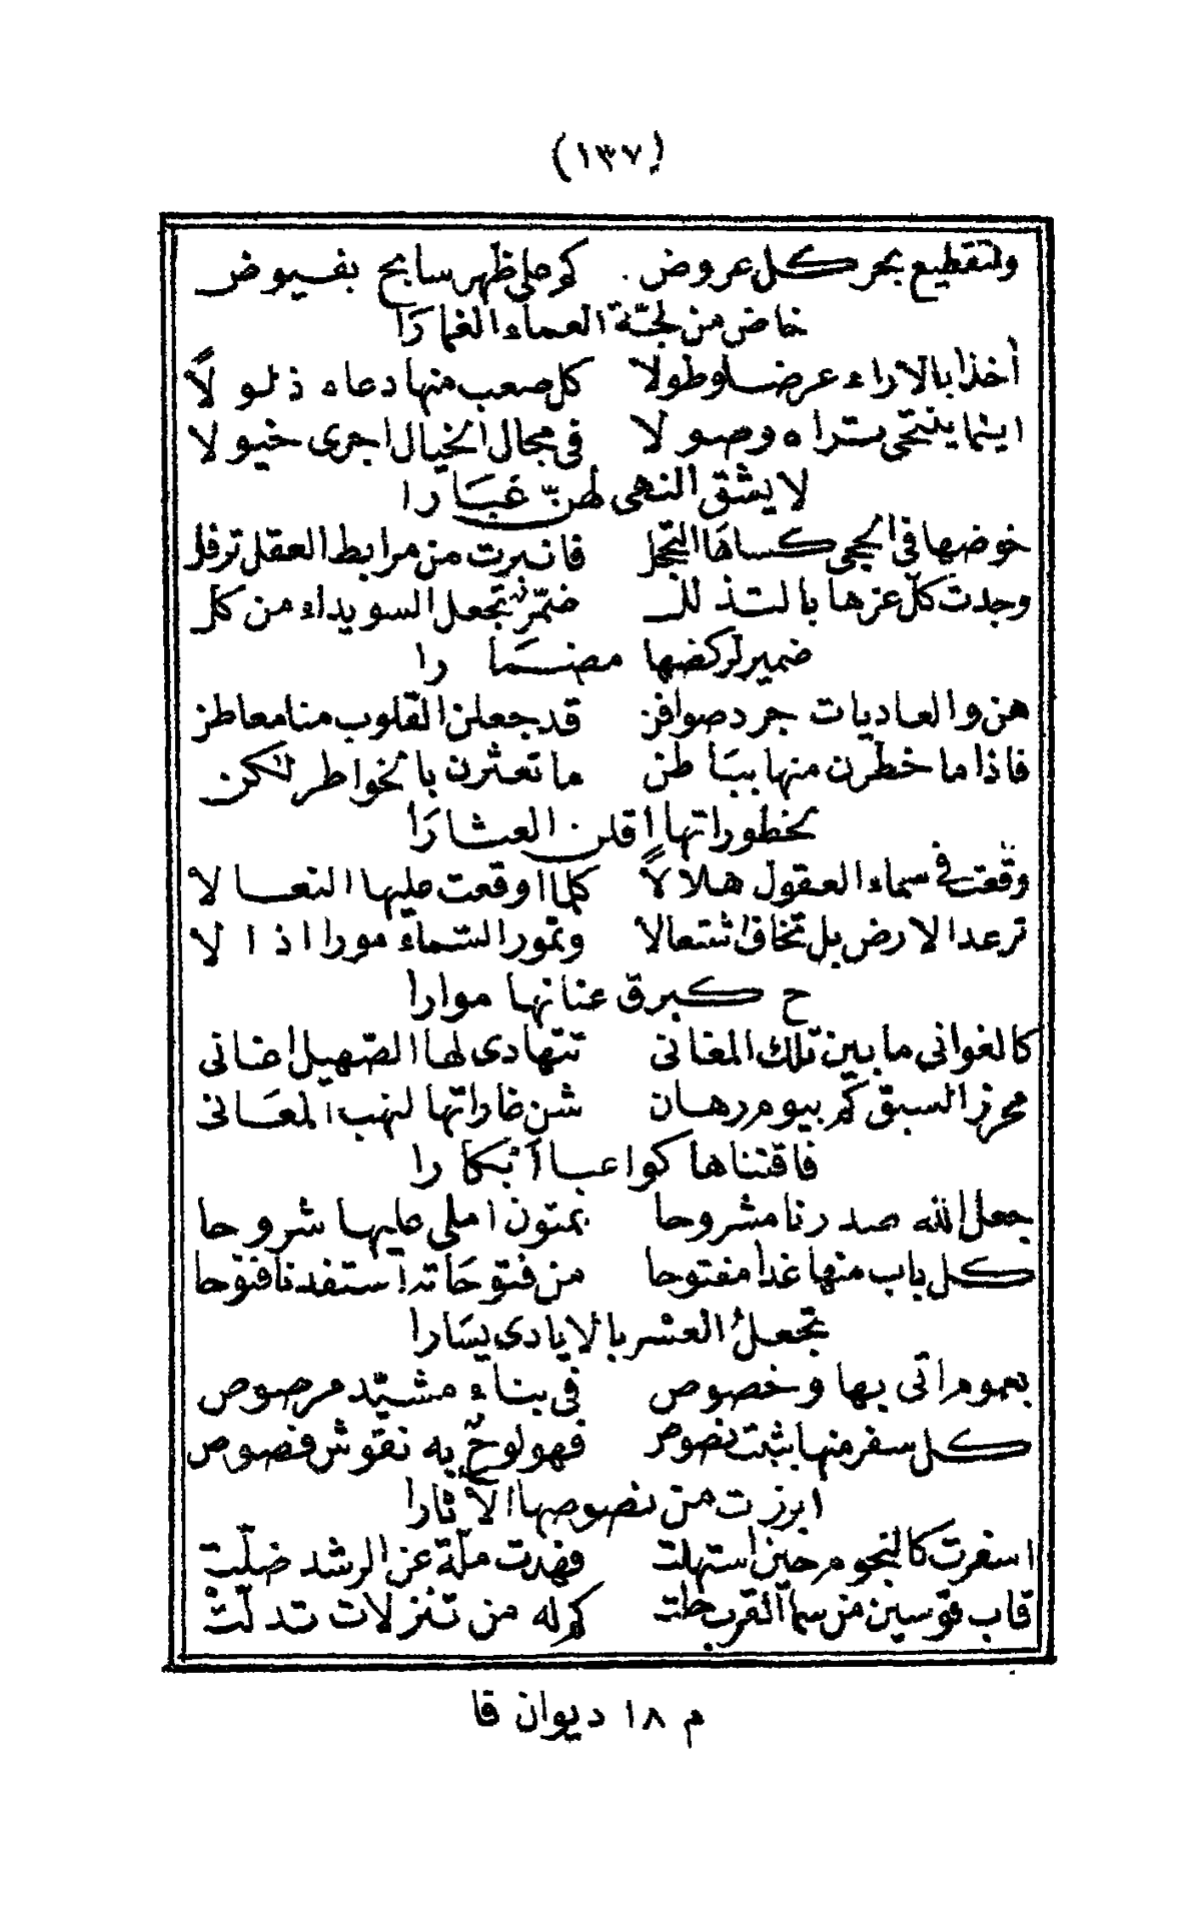 (١٣٧)
ولتقطيع بحر كل عروض كم على ظهر سابح بفيوض
خاض من لجّة العماء الغمارَا
أخذا بالاراء عرضا وطولا كل صعب منها دعاه ذلولاً
اينما ينتحى تراه وصولا فى مجال الخيال اجرى خيولا
لا يشق النهى لهنّ غبَارا
خوضها فى الحجى كساهَا التجمل فانبرت من مرابط العقل ترفل
وجدت كل عزها بالتذلل ضمّرته تجعل السويداء من كل
ضمير لركضها مضمَارا
هن والعاديات جرد صوافن قد جعلن القلوب منا معاطن
فاذا ما خطرن منها ببَاطن ما تعثرن بالخواطر لكن
بخطوراتها اقلن العثارَا
وقعت فى سماء العقول هلالاً كلما اوقعت عليها النعالا
ترعد الارض بل تخاف اشتعالا وتمور السّماء مورا اذا لا
ح كبرق عنانها موارا
كالغوانى ما بين تلك المغانى تتهادى لها الصّهيل اغانى
محرز السبق كم بيوم رهان شن غاراتها لنهب المعَانى
فاقتناها كواعبا أبكارا
جعل الله صدرنا مشروحا بمتون املى عليها شروحا
كل باب منها غدا مفتوحا من فتوحَاته استفدنا فتوحا
تجعلُ العسر بالايادى يسَارا
بعموم اتى بها وخصوص فى بناء مشيّد مرصوص
كل سفر منها بثبت نصوص فهو لوحٌ به نقوش فصوص
ابرزت من نصوصها الآثارا
اسفرت كالنجوم حين استهلت فهدت ملّة عن الرشد ضلّت
قاب قوسين من سمآ القرب حلت كم له من تنزلات تدلّتْ
م ١٨ ديوان فا